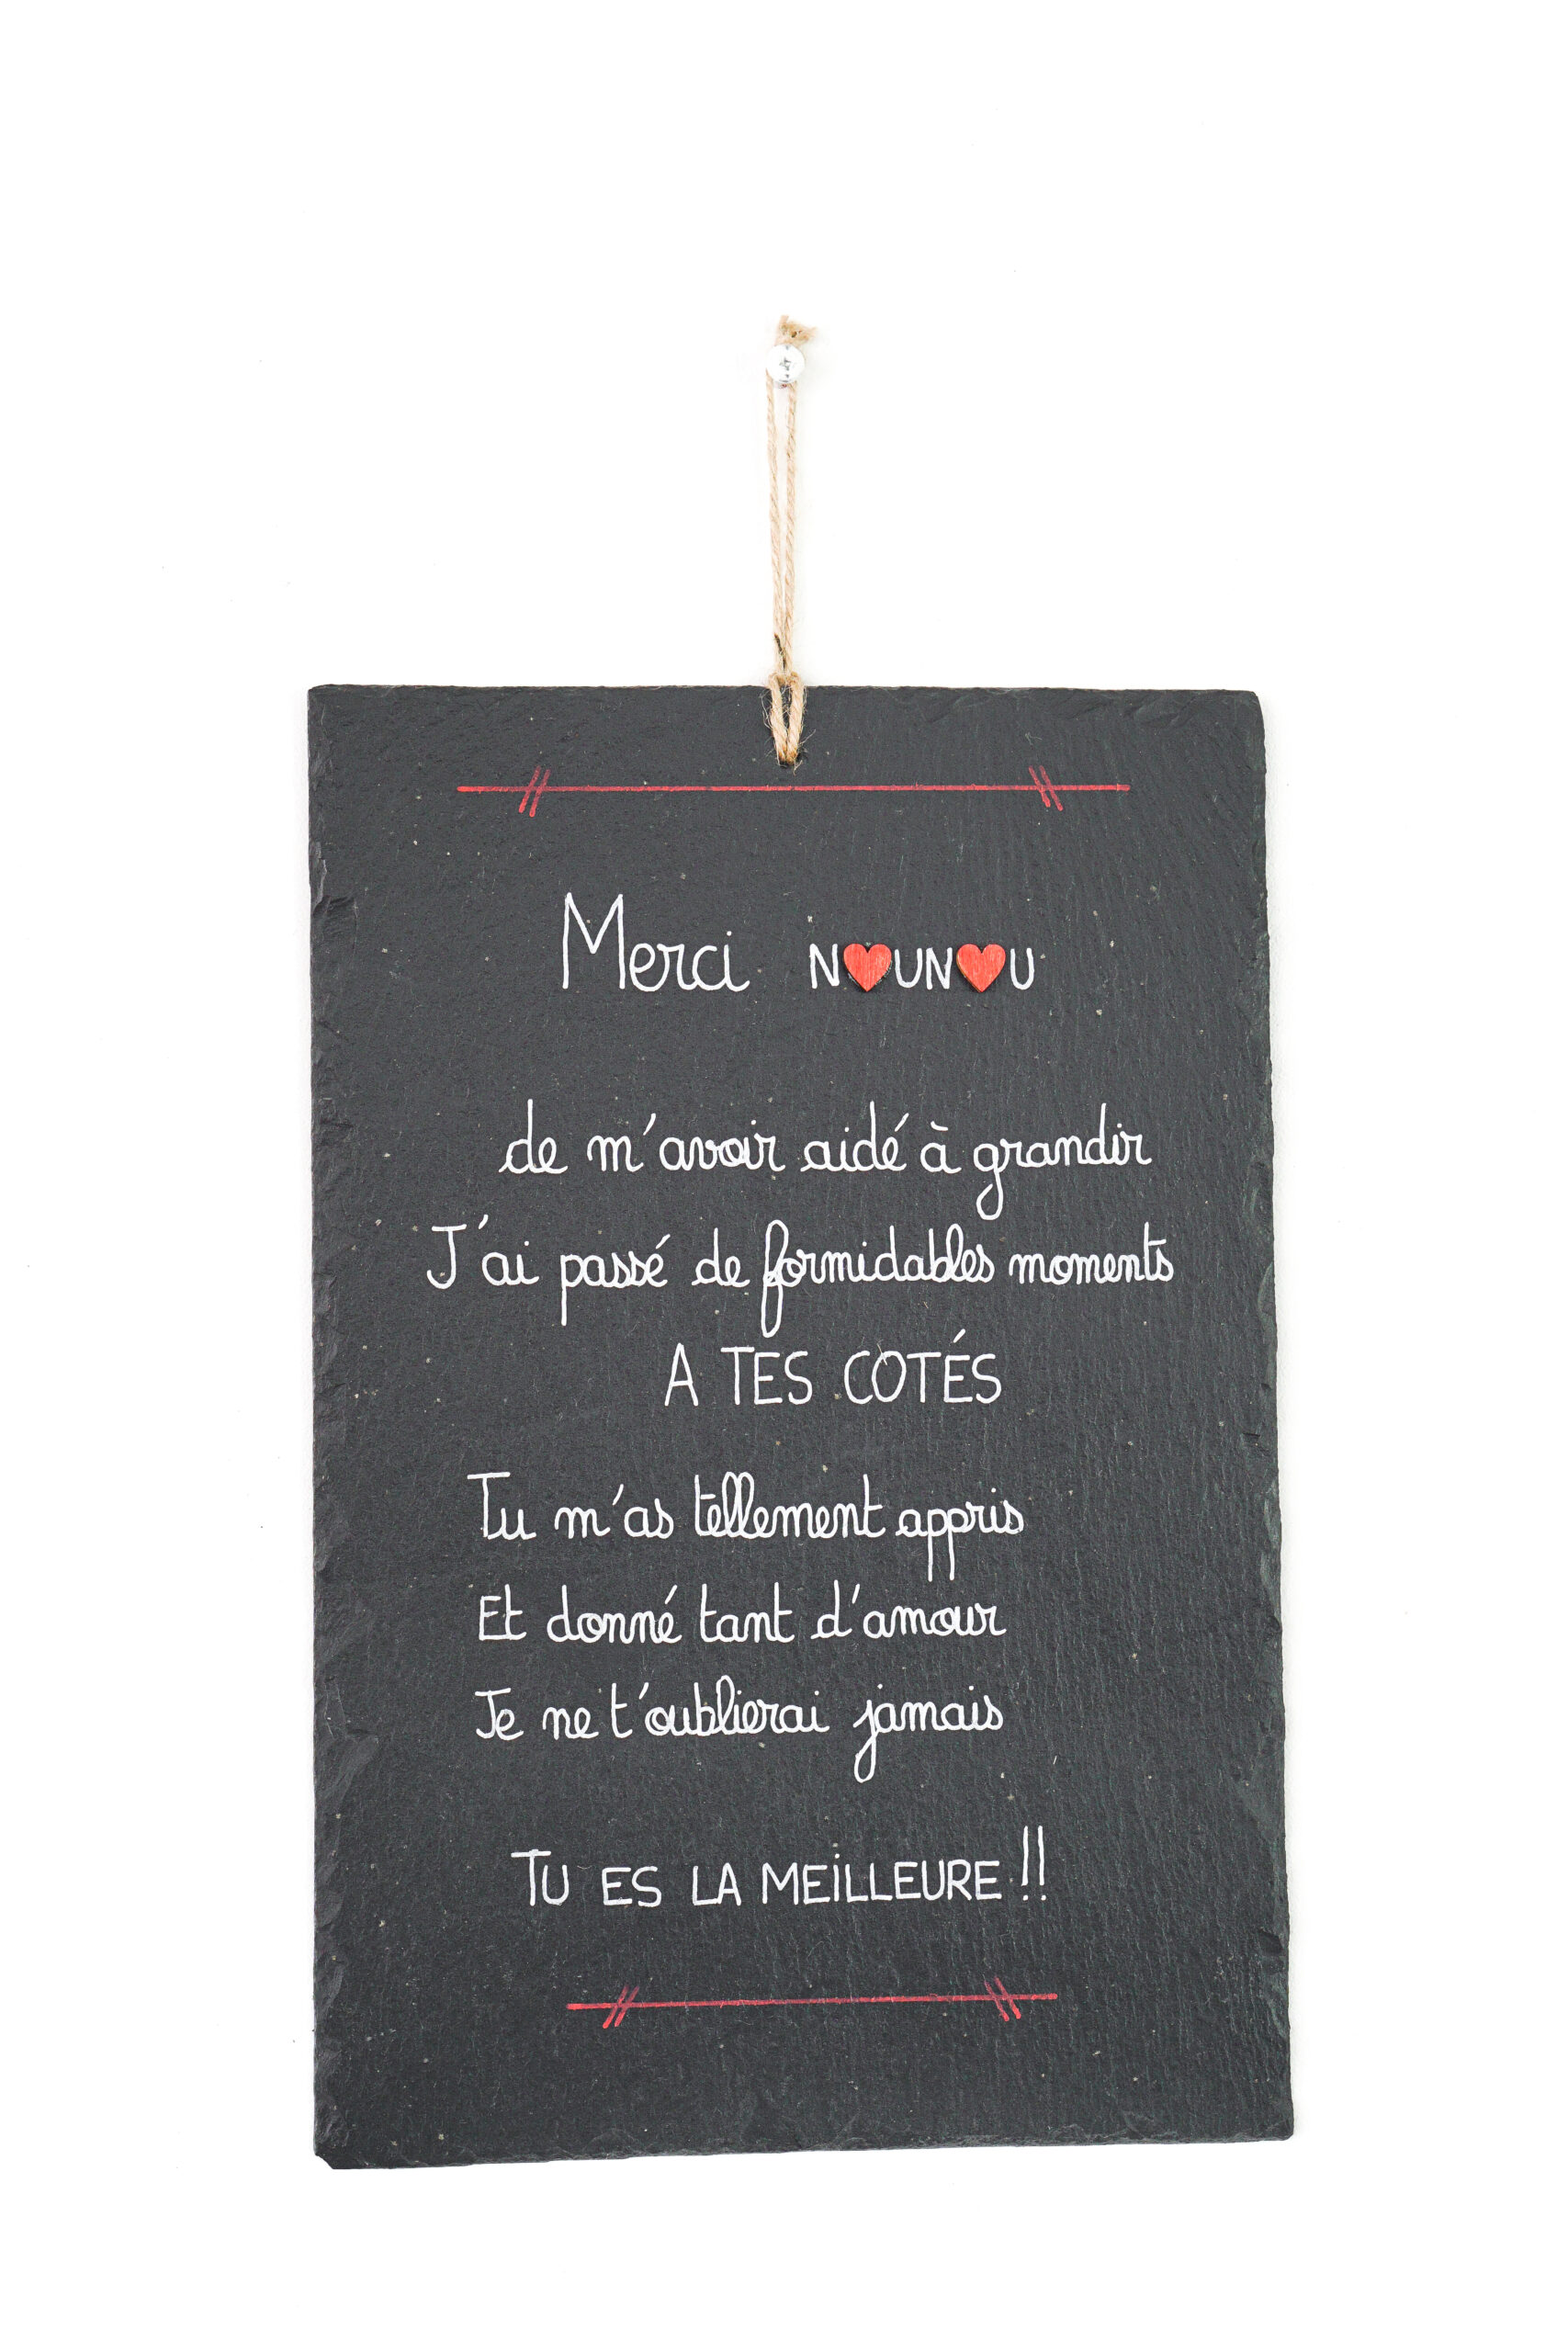 Merci N❤UN❤U
de m'avoir aidé à grandir
J'ai passé de formidables moments
A TES COTÉS
Tu m'as tellement appris
Et donné tant d'amour
Je ne t'oublierai jamais
TU ES LA MEILLEURE !!